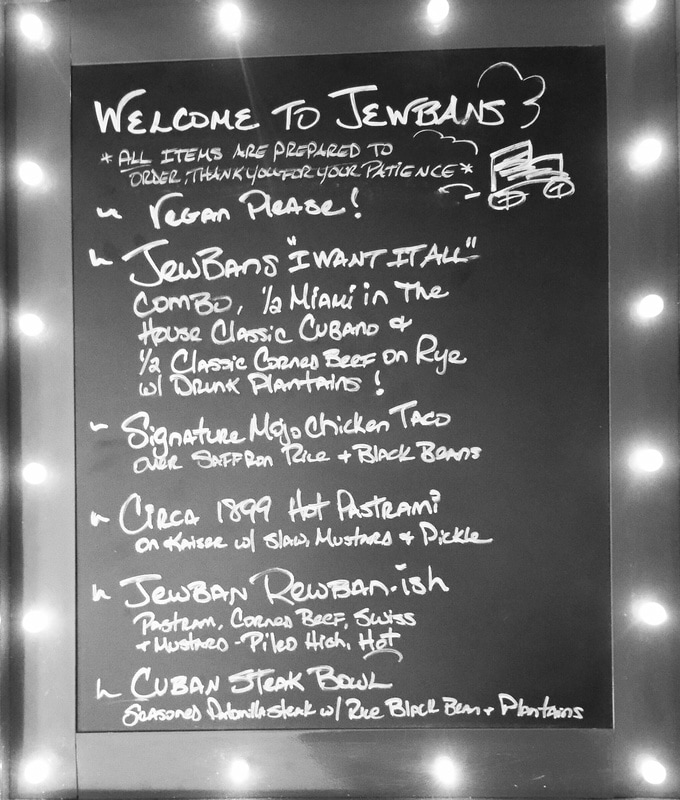 WELCOME TO JEWBANS
*ALL ITEMS ARE PREPARED TO
ORDER, THANK YOU FOR YOUR PATIENCE*
VEGAN PLEASE!
JEWBANS "I WANT IT ALL"
COMBO, 1/2 MIAMI in THE
HOUSE CLASSIC CUBANO &
1/2 CLASSIC CORNED BEEF ON RYE
w/ DRUNK PLANTAINS!
SIGNATURE MOJO CHICKEN TACO
OVER SAFFRON RICE + BLACK BEANS
CIRCA 1899 HOT PASTRAMI
ON KAISER w/ SLAW, MUSTARD & PICKLE
JEWBAN REWBAN-ish
PASTRAM, CORNED BEEF, SWISS
+ MUSTARD - PILED HIGH, HOT
CUBAN STEAK BOWL
SEASONED PALOMILLA STEAK w/ RICE BLACK BEAN + PLANTAINS